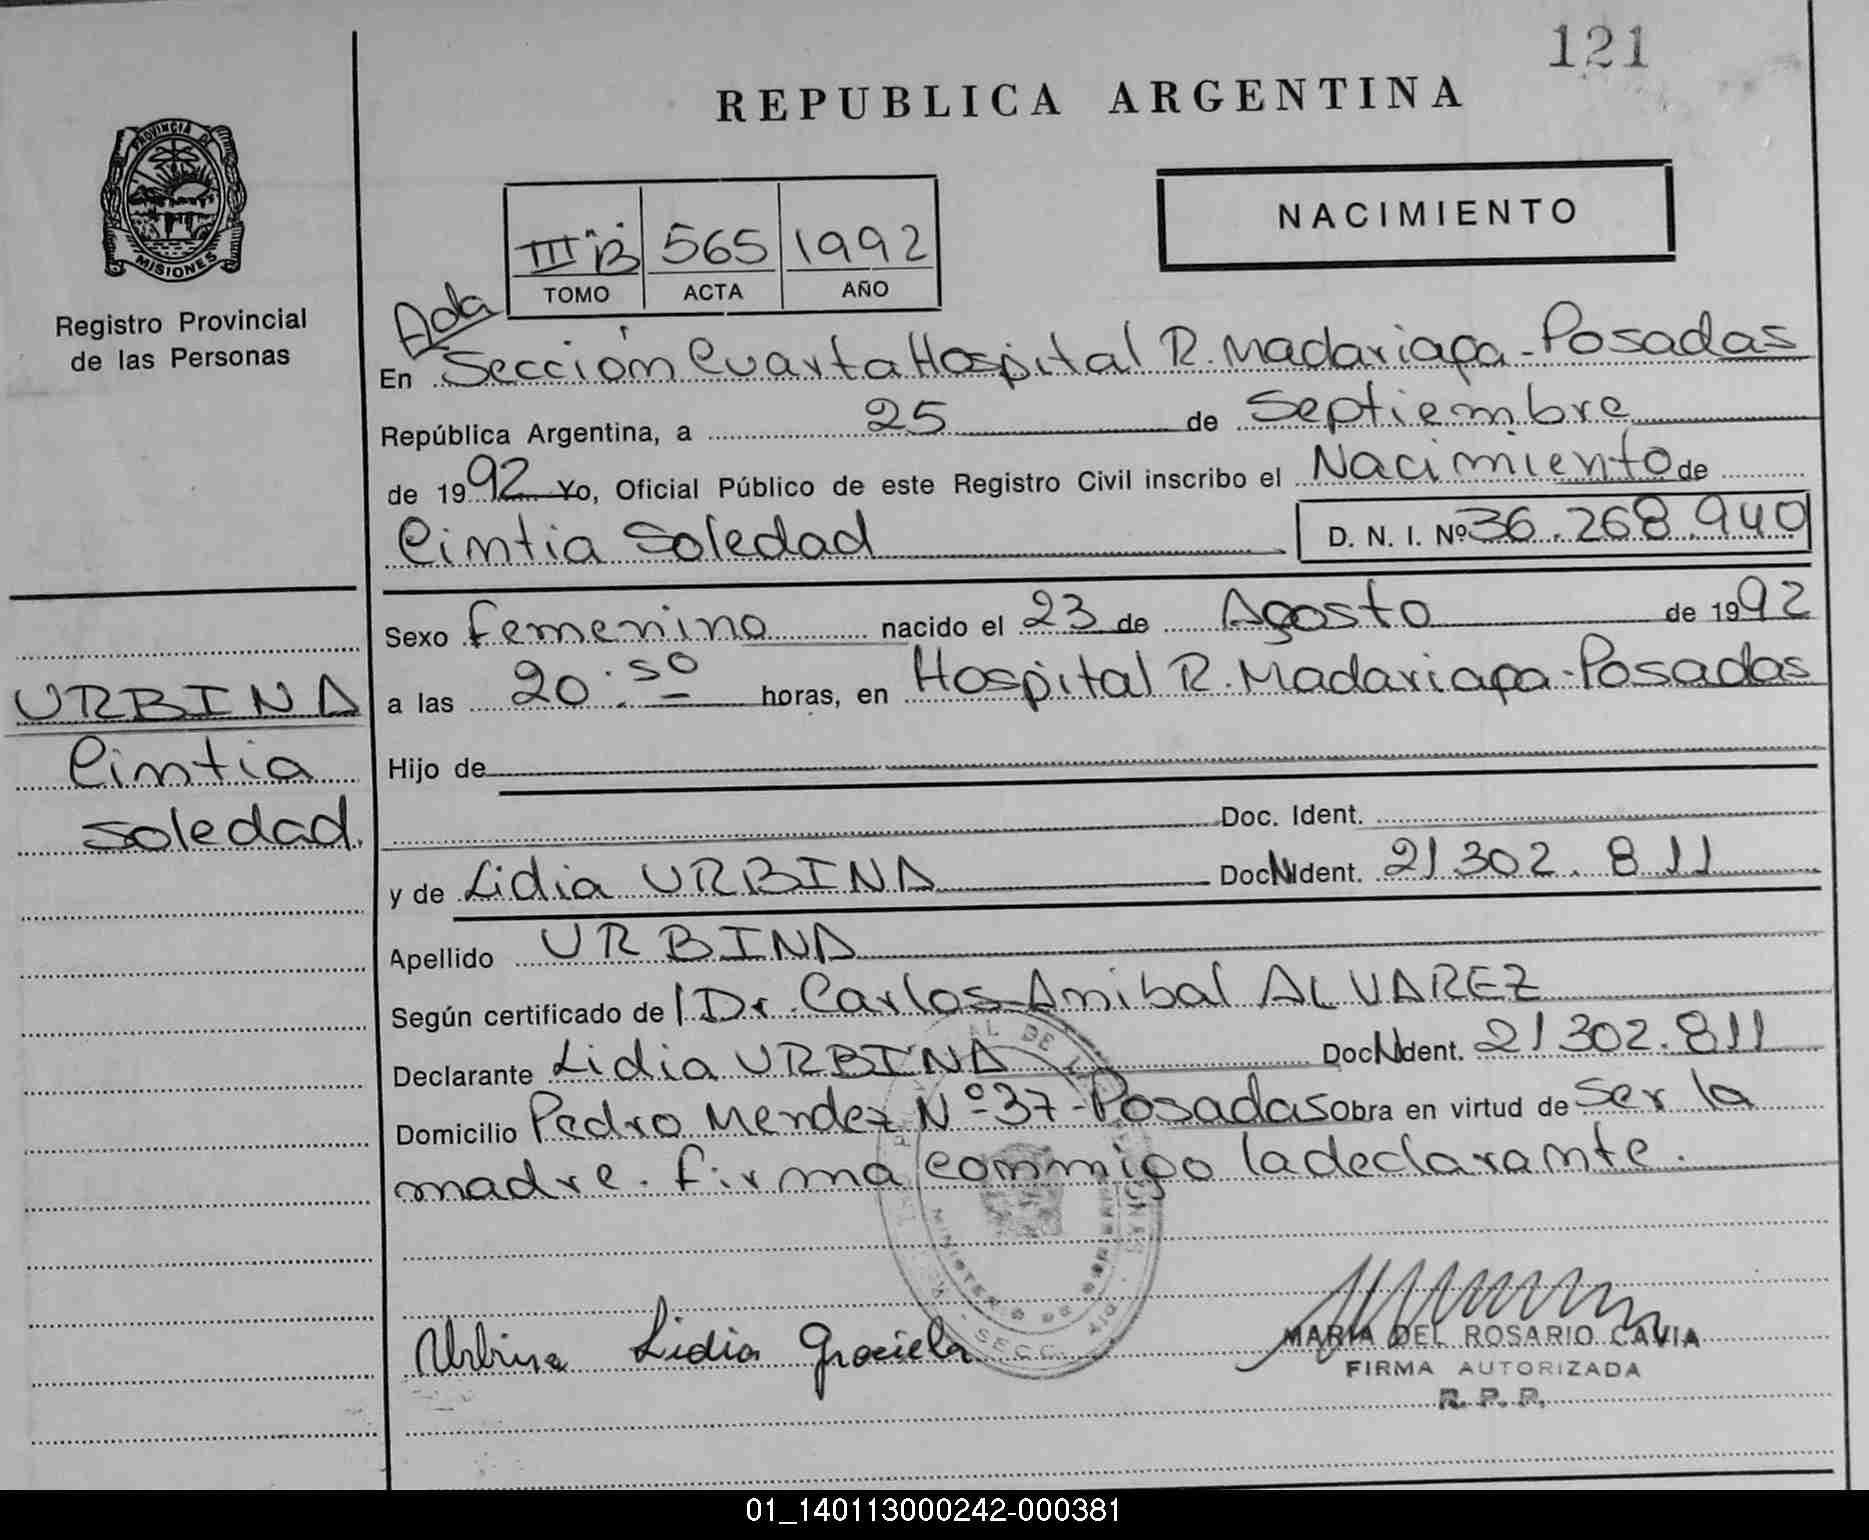 121
REPUBLICA ARGENTINA
NACIMIENTO
III "B" 565 1992
TOMO ACTA AÑO
PROVINCIA DE
MISIONES
Registro Provincial
de las Personas
Ada
En Sección Cuarta Hospital R. Madariaga - Posadas
República Argentina, a 25 de Septiembre
de 1992 Yo, Oficial Público de este Registro Civil inscribo el Nacimiento de
Cintia Soledad D. N. I. Nº 36.268.940
Sexo femenino nacido el 23 de Agosto de 1992
a las 20:50 horas, en Hospital R. Madariaga - Posadas
URBINA
Cintia
Soledad.
Hijo de
Doc. Ident.
y de Lidia URBINA Doc. Ident. 21 302.811
Apellido URBINA
Según certificado de Dr. Carlos Anibal ALVAREZ
Declarante Lidia URBINA Doc. Ident. 21 302.811
Domicilio Pedro Mendez Nº 37 - Posadas Obra en virtud de ser la
madre. firma conmigo la declarante.
Urbina Lidia Graciela
MARIA DEL ROSARIO CAVIA
FIRMA AUTORIZADA
R. P. P.
01_140113000242-000381